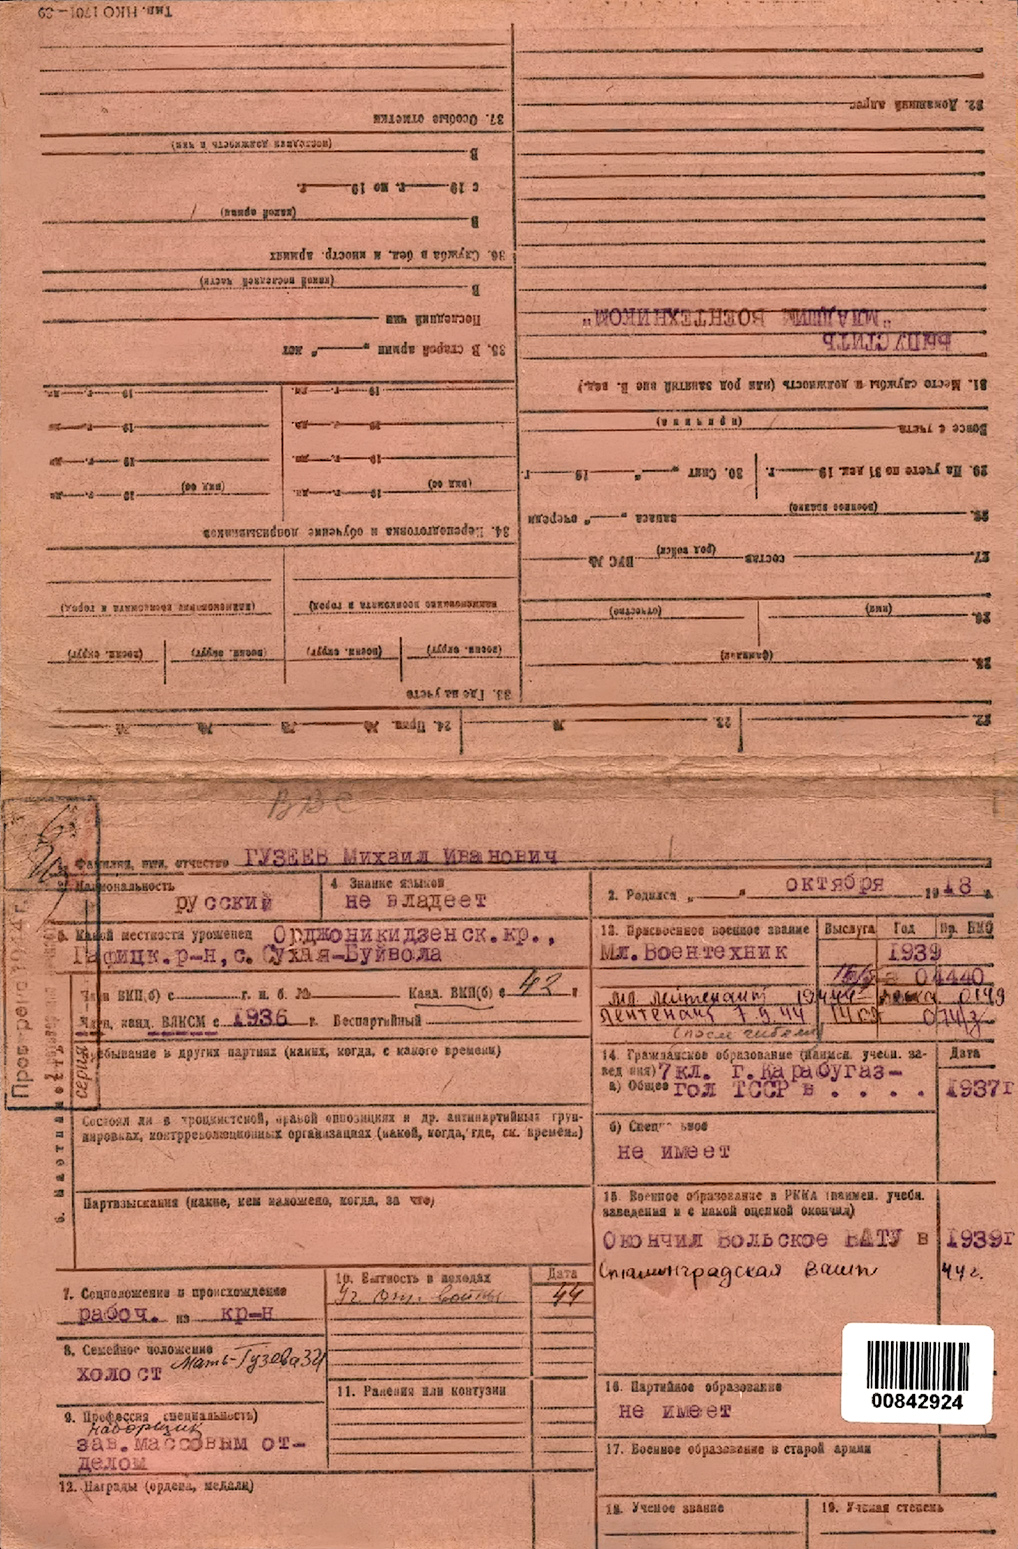 Тип. НКО 1701—39
37. Особые отметки
В
(последняя должность и чин)
с 19 г. по 19 г.
В
(какой армии)
36. Служба в бел. и иностр. армиях
В
(какой последней части)
Последний чин
35. В старой армии „ “ лет
19 г. дн. 19 г. дн.
19 г. дн. 19 г. дн.
19 г. дн. 19 г. дн.
(вид сб) 19 г. дн. (вид сб) 19 г. дн.
34. Переподготовка и обучение допризывников
(наименование военкомата и город) (наименование военкомата и город)
(военн. округ) (военн. округ) (военн. округ) (военн. округ)
33. Где на учете
32. Домашний адрес
"МЛАДШИМ ВОЕНТЕХНИКОМ"
ВЫПУСТИТЬ
31. Место службы и должность (или род занятий вне В. вед.)
Вовсе с учета
(причина)
29. На учете по 31 дек. 19 г. 30. Снят „ “ 19 г.
28. (военное звание) запаса „ “ очереди
27. состав (род войск) ВУС №
26. (имя) (отчество)
25. (фамилия)
22. 23. № 24. Прик. № № №
ВВС
Проверено 1941 г.
серия
1. Фамилия, имя, отчество ГУЗЕЕВ Михаил Иванович
3. Национальность
русский
4 Знание языков
не владеет
2. Родился „ “ октября 1918 г.
5. Какой местности уроженец Орджоникидзенск.кр.,
р-н, с. Сухая-Буйвола
6. Партийность
Член ВКП(б) с г. п. б. № Канд. ВКП(б) с 42 г
Член, канд. ВЛКСМ с 1936 г. Беспартийный
Пребывание в других партиях (каких, когда, с какого времени)
Состоял ли в троцкистской, правой оппозициях и др. антипартийных груп-
пировках, контрреволюционных организациях (какой, когда, где, см. времени)
Партвзыскания (какие, кем наложено, когда, за что)
7. Соцположение и происхождение
рабоч. из кр-н
8. Семейное положение
холост мать-Гузева
9. Профессия (специальность)
наборщик
зав.массовым от-
делом
10. Бытность в походах Дата
Уч. отч. войны 44
11. Ранения или контузии
12. Награды (ордена, медали)
13. Присвоенное военное звание Выслуга Год Пр. НКО
Мл.Воентехник 1939
04440
мл лейтенант 0149
лейтенант 7.9.44
(после гибели)
14. Гражданское образование (наимен. учебн. за- Дата
ведения) 7кл. г.Карабугаз-
а) Общее гол ТССР в . . . . 1937г
б) Специальное
не имеет
15. Военное образование в РККА (наимен. учебн.
заведения и с какой оценкой окончил)
Окончил Вольское ВАТУ в 1939г
Сталинградская 44г.
16. Партийное образование
не имеет
17. Военное образование в старой армии
18. Ученое звание 19. Ученая степень
00842924